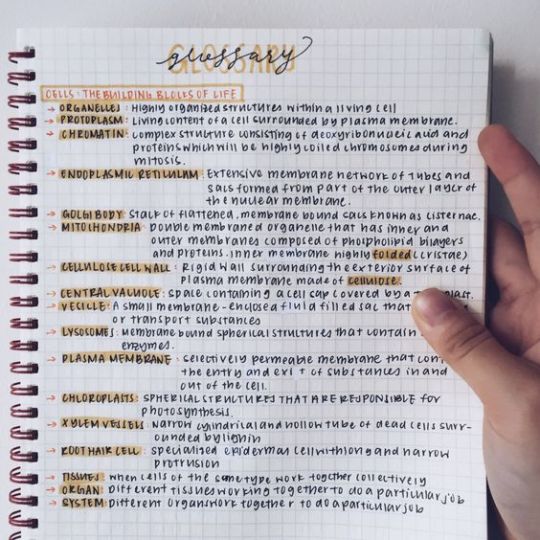 GLOSSARY
glossary
CELLS: THE BUILDING BLOCKS OF LIFE
→ ORGANELLES : Highly organized structures within a living cell
→ PROTOPLASM : Living content of a cell surrounded by plasma membrane.
→ CHROMATIN : complex structure consisting of deoxyribonucleic acid and
proteins which will be highly coiled chromosomes during
mitosis.
→ ENDOPLASMIC RETICULAM : Extensive membrane network of tubes and
sacs formed from part of the outer layer of
the nuclear membrane.
→ GOLGI BODY : Stack of flattened, membrane bound sacs known as cisternae.
→ MITOCHONDRIA : Double membraned organelle that has inner and
outer membranes composed of phospholipid bilayers
and proteins. inner membrane highly folded (cristae)
→ CELLULOSE CELL WALL : Rigid wall surrounding the exterior surface of
plasma membrane made of cellulose.
→ CENTRAL VACUOLE : space containing a cell sap covered by a
→ VESICLE : A small membrane-enclosed fluid filled sac that
or transport substances
→ LYSOSOMES : Membrane bound spherical structures that contain
enzymes.
→ PLASMA MEMBRANE : selectively permeable membrane that
the entry and exit of substances in and
out of the cell.
→ CHLOROPLASTS : SPHERICAL STRUCTURES THAT ARE RESPONSIBLE for
photosynthesis.
→ XYLEM VESSELS : Narrow cylindrical and hollow tube of dead cells surr-
ounded by lignin
→ ROOT HAIR CELL : specialized epidermal cell with long and narrow
protrusion
→ TISSUES : when cells of the same type work together collectively
→ ORGAN : Different tissues working together to do a particular job
→ SYSTEM : Different organs work together to do a particular job